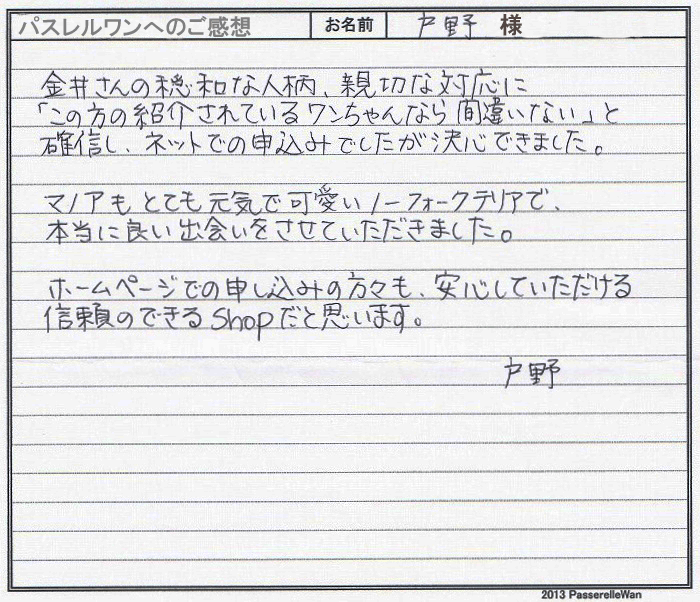 パスレルワンへのご感想 お名前 戸野 様
金井さんの穏和な人柄、親切な対応に
「この方の紹介されているワンちゃんなら間違いない」と
確信し、ネットでの申込みでしたが決心できました。
マノアもとても元気で可愛いノーフォークテリアで、
本当に良い出会いをさせていただきました。
ホームページでの申し込みの方々も、安心していただける
信頼のできるshopだと思います。
戸野
2013 PasserelleWan